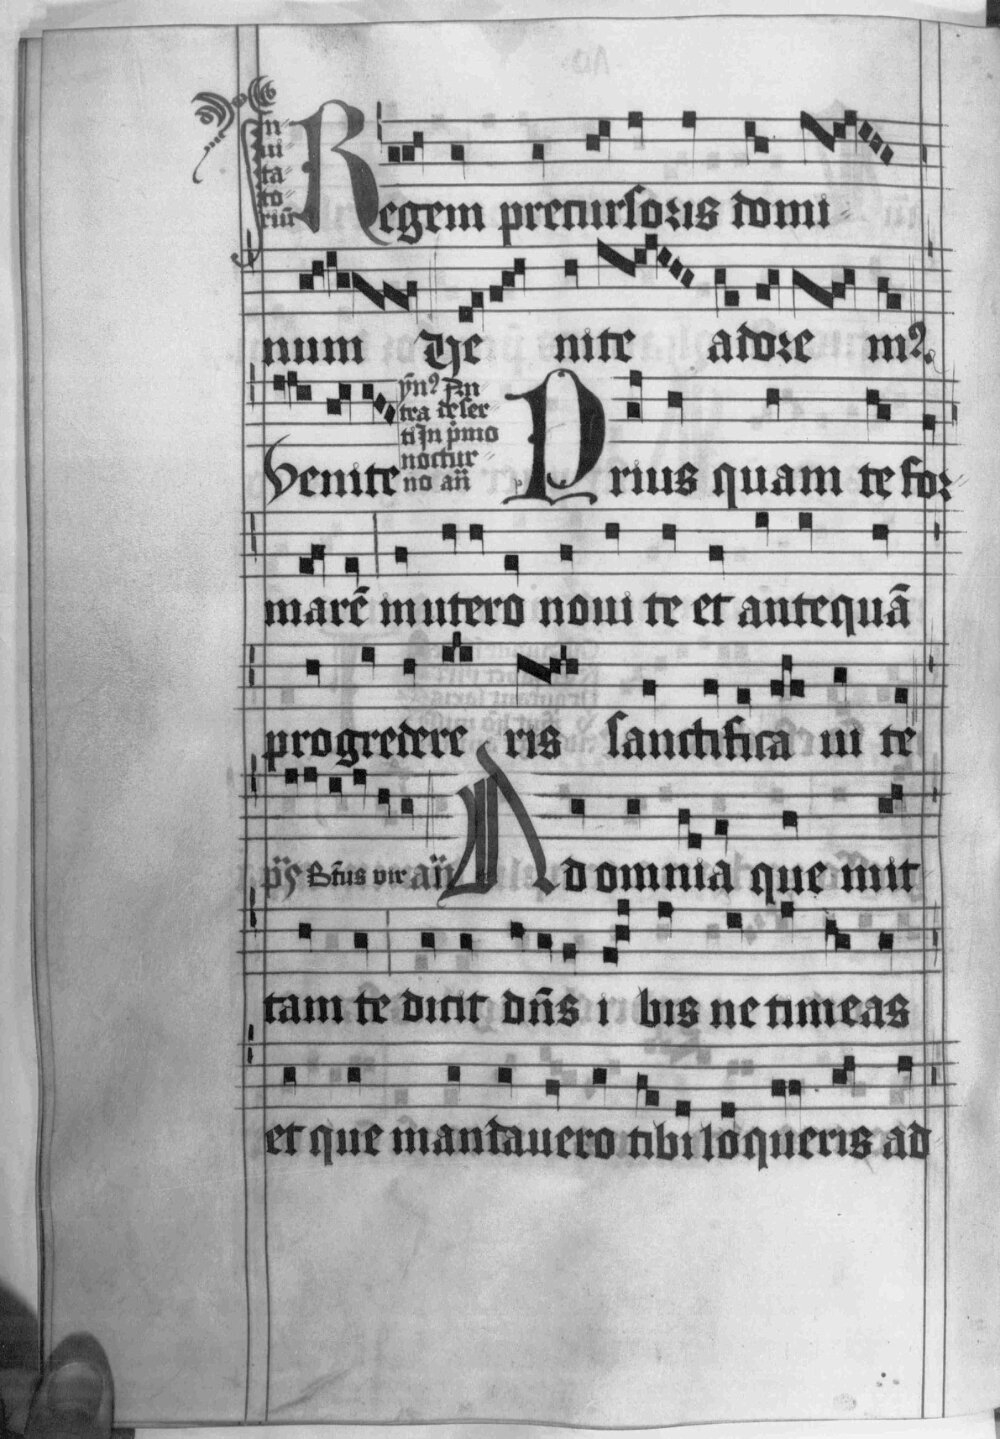 In
ui
ta
to
riū
Regem precursoris domi
num Ve nite adore m
Venite
yn An
tra deser
ti In pmo
noctur
no an
Prius quam te for
marē in utero noui te et antequā
progredere ris sanctifica ui te
ps Btus vir an Ad omnia que mit
tam te dicit dns i bis ne timeas
et que mandauero tibi loqueris ad